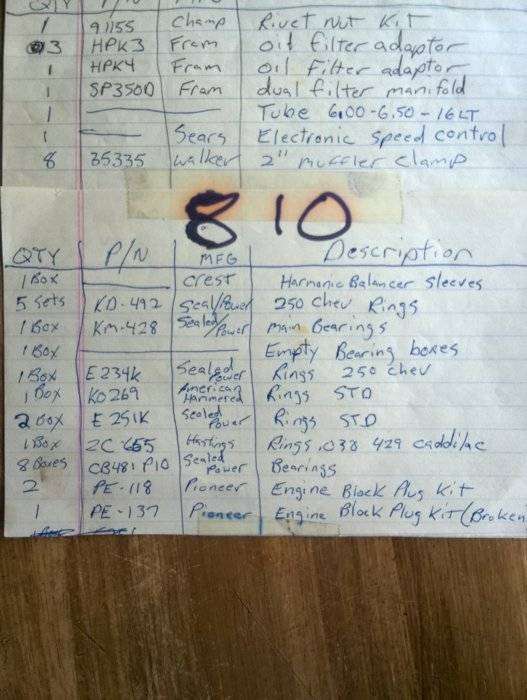 QTY P/N MFG
1 91155 Champ Rivet Nut Kit
3 HPK3 Fram oil filter adaptor
1 HPK4 Fram oil Filter adaptor
1 SP350D Fram dual filter manifold
1 Tube 6.00-6.50-16LT
1 Sears Electronic speed control
8 35335 walker 2" muffler clamp
8 10
QTY P/N MFG Description
1 Box crest Harmonic Balancer Sleeves
5 sets KD-492 Seal/Power 250 Chev Rings
1 Box KM-428 Sealed/Power main Bearings
1 Box Empty Bearing boxes
1 Box E234K Sealed Power Rings 250 chev
1 Box KO269 American Hammered Rings STD
2 box E 251K Sealed Power Rings STD
1 Box 2C 655 Hastings Rings .038 429 caddilac
8 Boxes CB481 P10 Sealed Power Bearings
2 PE-118 Pioneer Engine Block Plug Kit
1 PE-137 Pioneer Engine Block Plug Kit (Broken